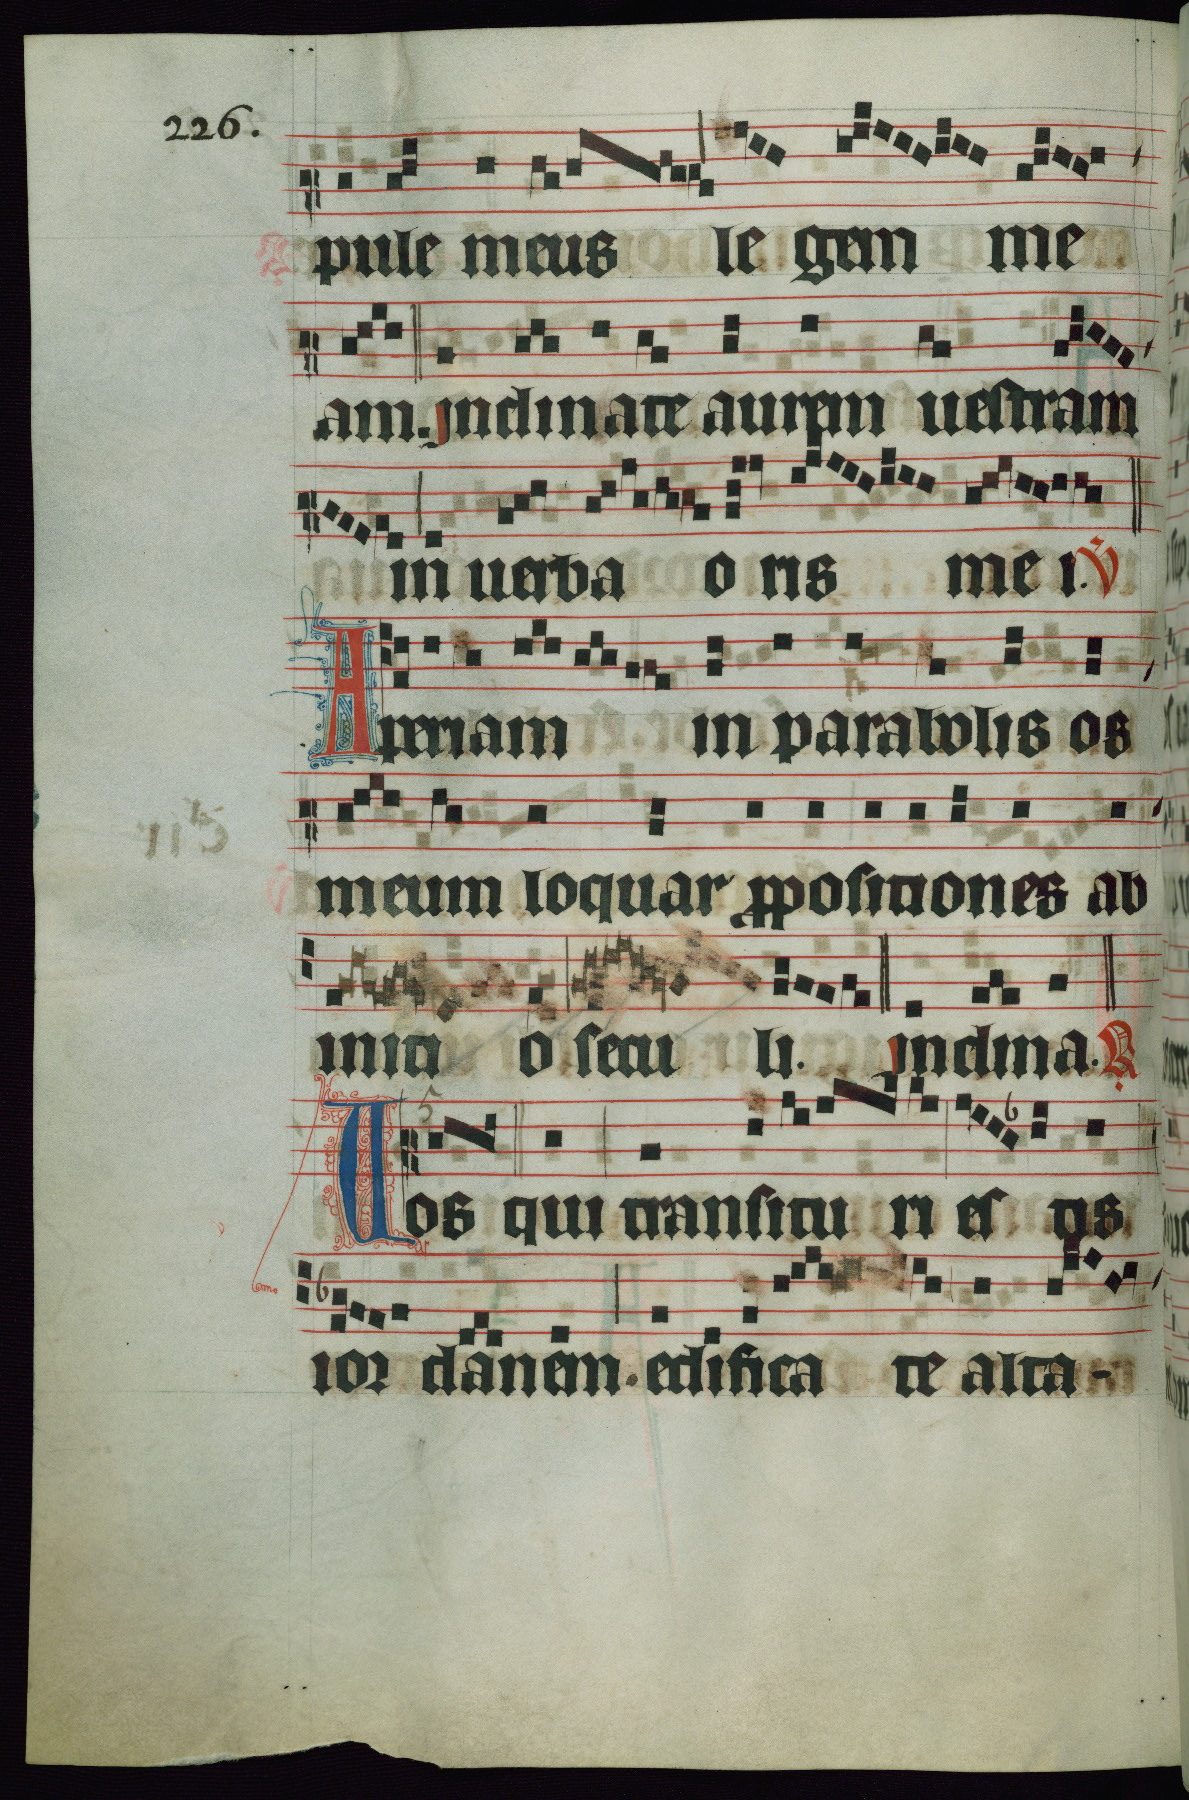 226.
pule meus le gem me
am. inclinate aurem uestram
in uerba o ris me i. ℣
Aperiam in parabolis os
meum loquar ꝓpositiones ab
initi o secu li. inclina. ℟
5
Uos qui transitu ri es tis
ior danem. edifica te alta-